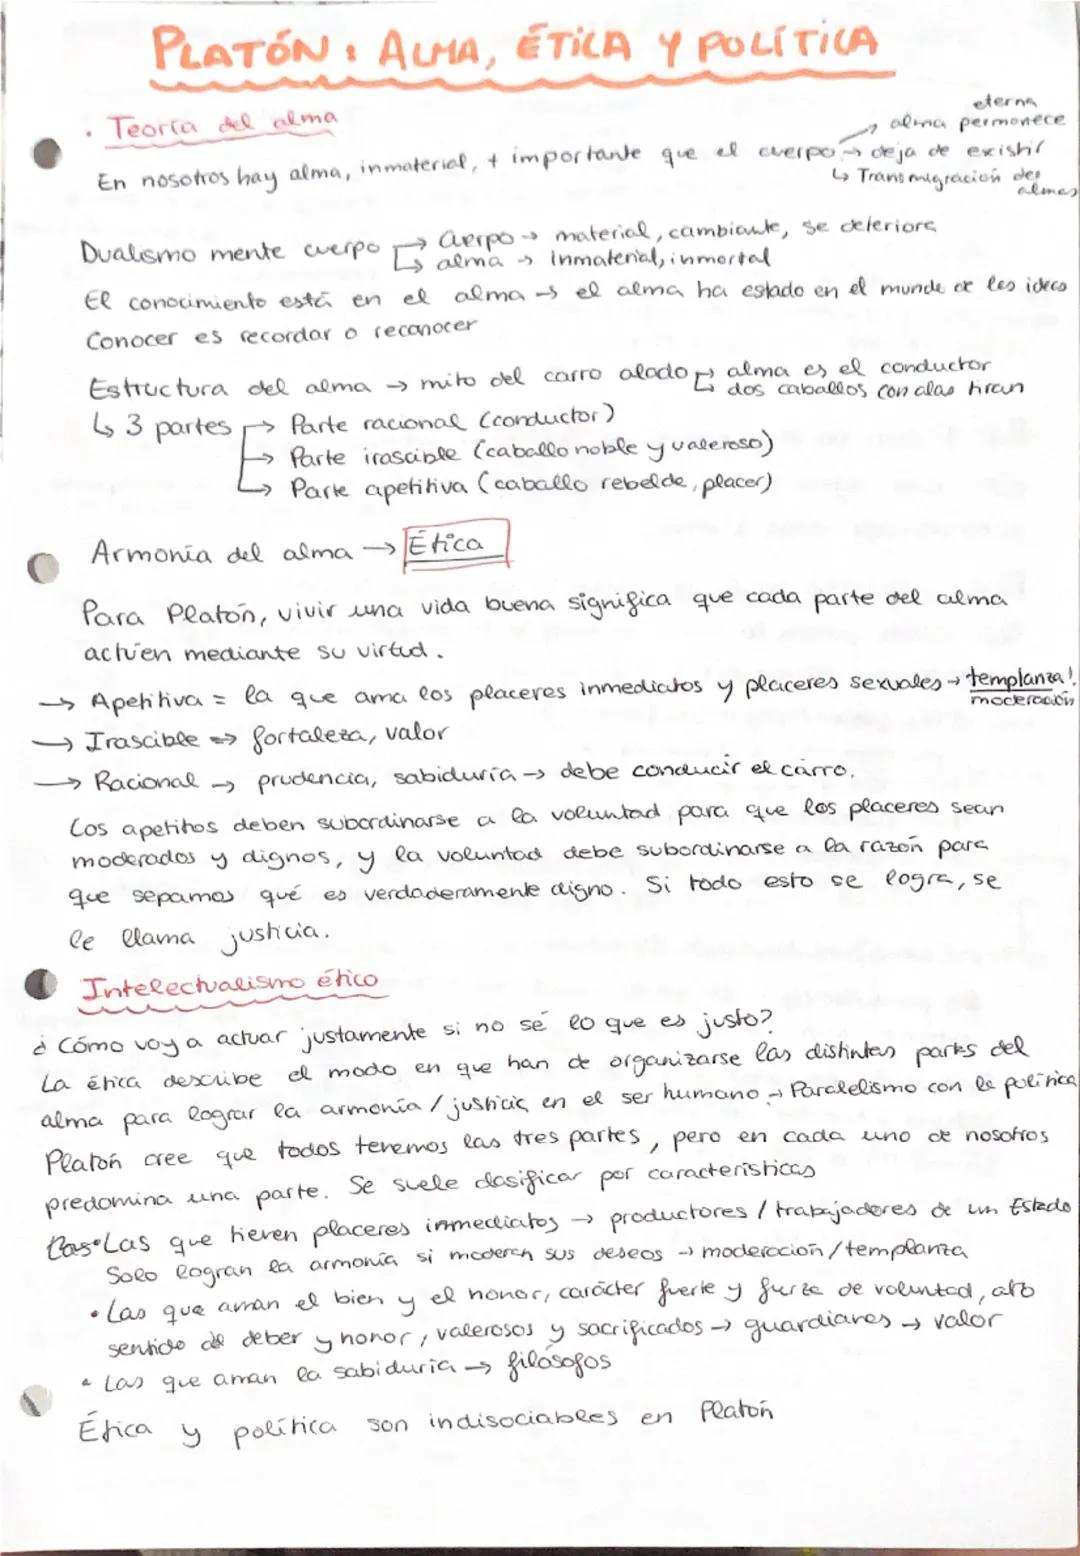 PLATÓN: ALMA, ÉTICA Y POLÍTICA
• Teoría del alma
eterna
alma permanece
En nosotros hay alma, inmaterial, + importante que el cuerpo → deja de existir
↳ Transmigración des almas
Dualismo mente cuerpo → Cuerpo → material, cambiante, se deteriora
↳ alma → inmaterial, inmortal
El conocimiento está en el alma → el alma ha estado en el mundo de las ideas
Conocer es recordar o reconocer
Estructura del alma → mito del carro alado → alma es el conductor
↳ dos caballos con alas tiran
↳ 3 partes → Parte racional (conductor)
→ Parte irascible (caballo noble y valeroso)
→ Parte apetitiva (caballo rebelde, placer)
Armonía del alma → Ética
Para Platón, vivir una vida buena significa que cada parte del alma
actúen mediante su virtud.
→ Apetitiva = la que ama los placeres inmediatos y placeres sexuales → templanza!
moderación
→ Irascible => fortaleza, valor
→ Racional → prudencia, sabiduría → debe conducir el carro.
Los apetitos deben subordinarse a la voluntad para que los placeres sean
moderados y dignos, y la voluntad debe subordinarse a la razón para
que sepamos qué es verdaderamente digno. Si todo esto se logra, se
le llama justicia.
Intelectualismo ético
¿Cómo voy a actuar justamente si no sé lo que es justo?
La ética describe el modo en que han de organizarse las distintas partes del
alma para lograr la armonía / justicia en el ser humano → Paralelismo con la política
Platón cree que todos tenemos las tres partes, pero en cada uno de nosotros
predomina una parte. Se suele clasificar por características
• Las que tienen placeres inmediatos → productores / trabajadores de un Estado
Solo logran la armonía si moderan sus deseos → moderación / templanza
• Las que aman el bien y el honor, carácter fuerte y furza de voluntad, alto
sentido de deber y honor, valerosos y sacrificados → guardianes → valor
• Las que aman la sabiduría → filósofos
Ética y política son indisociables en Platón